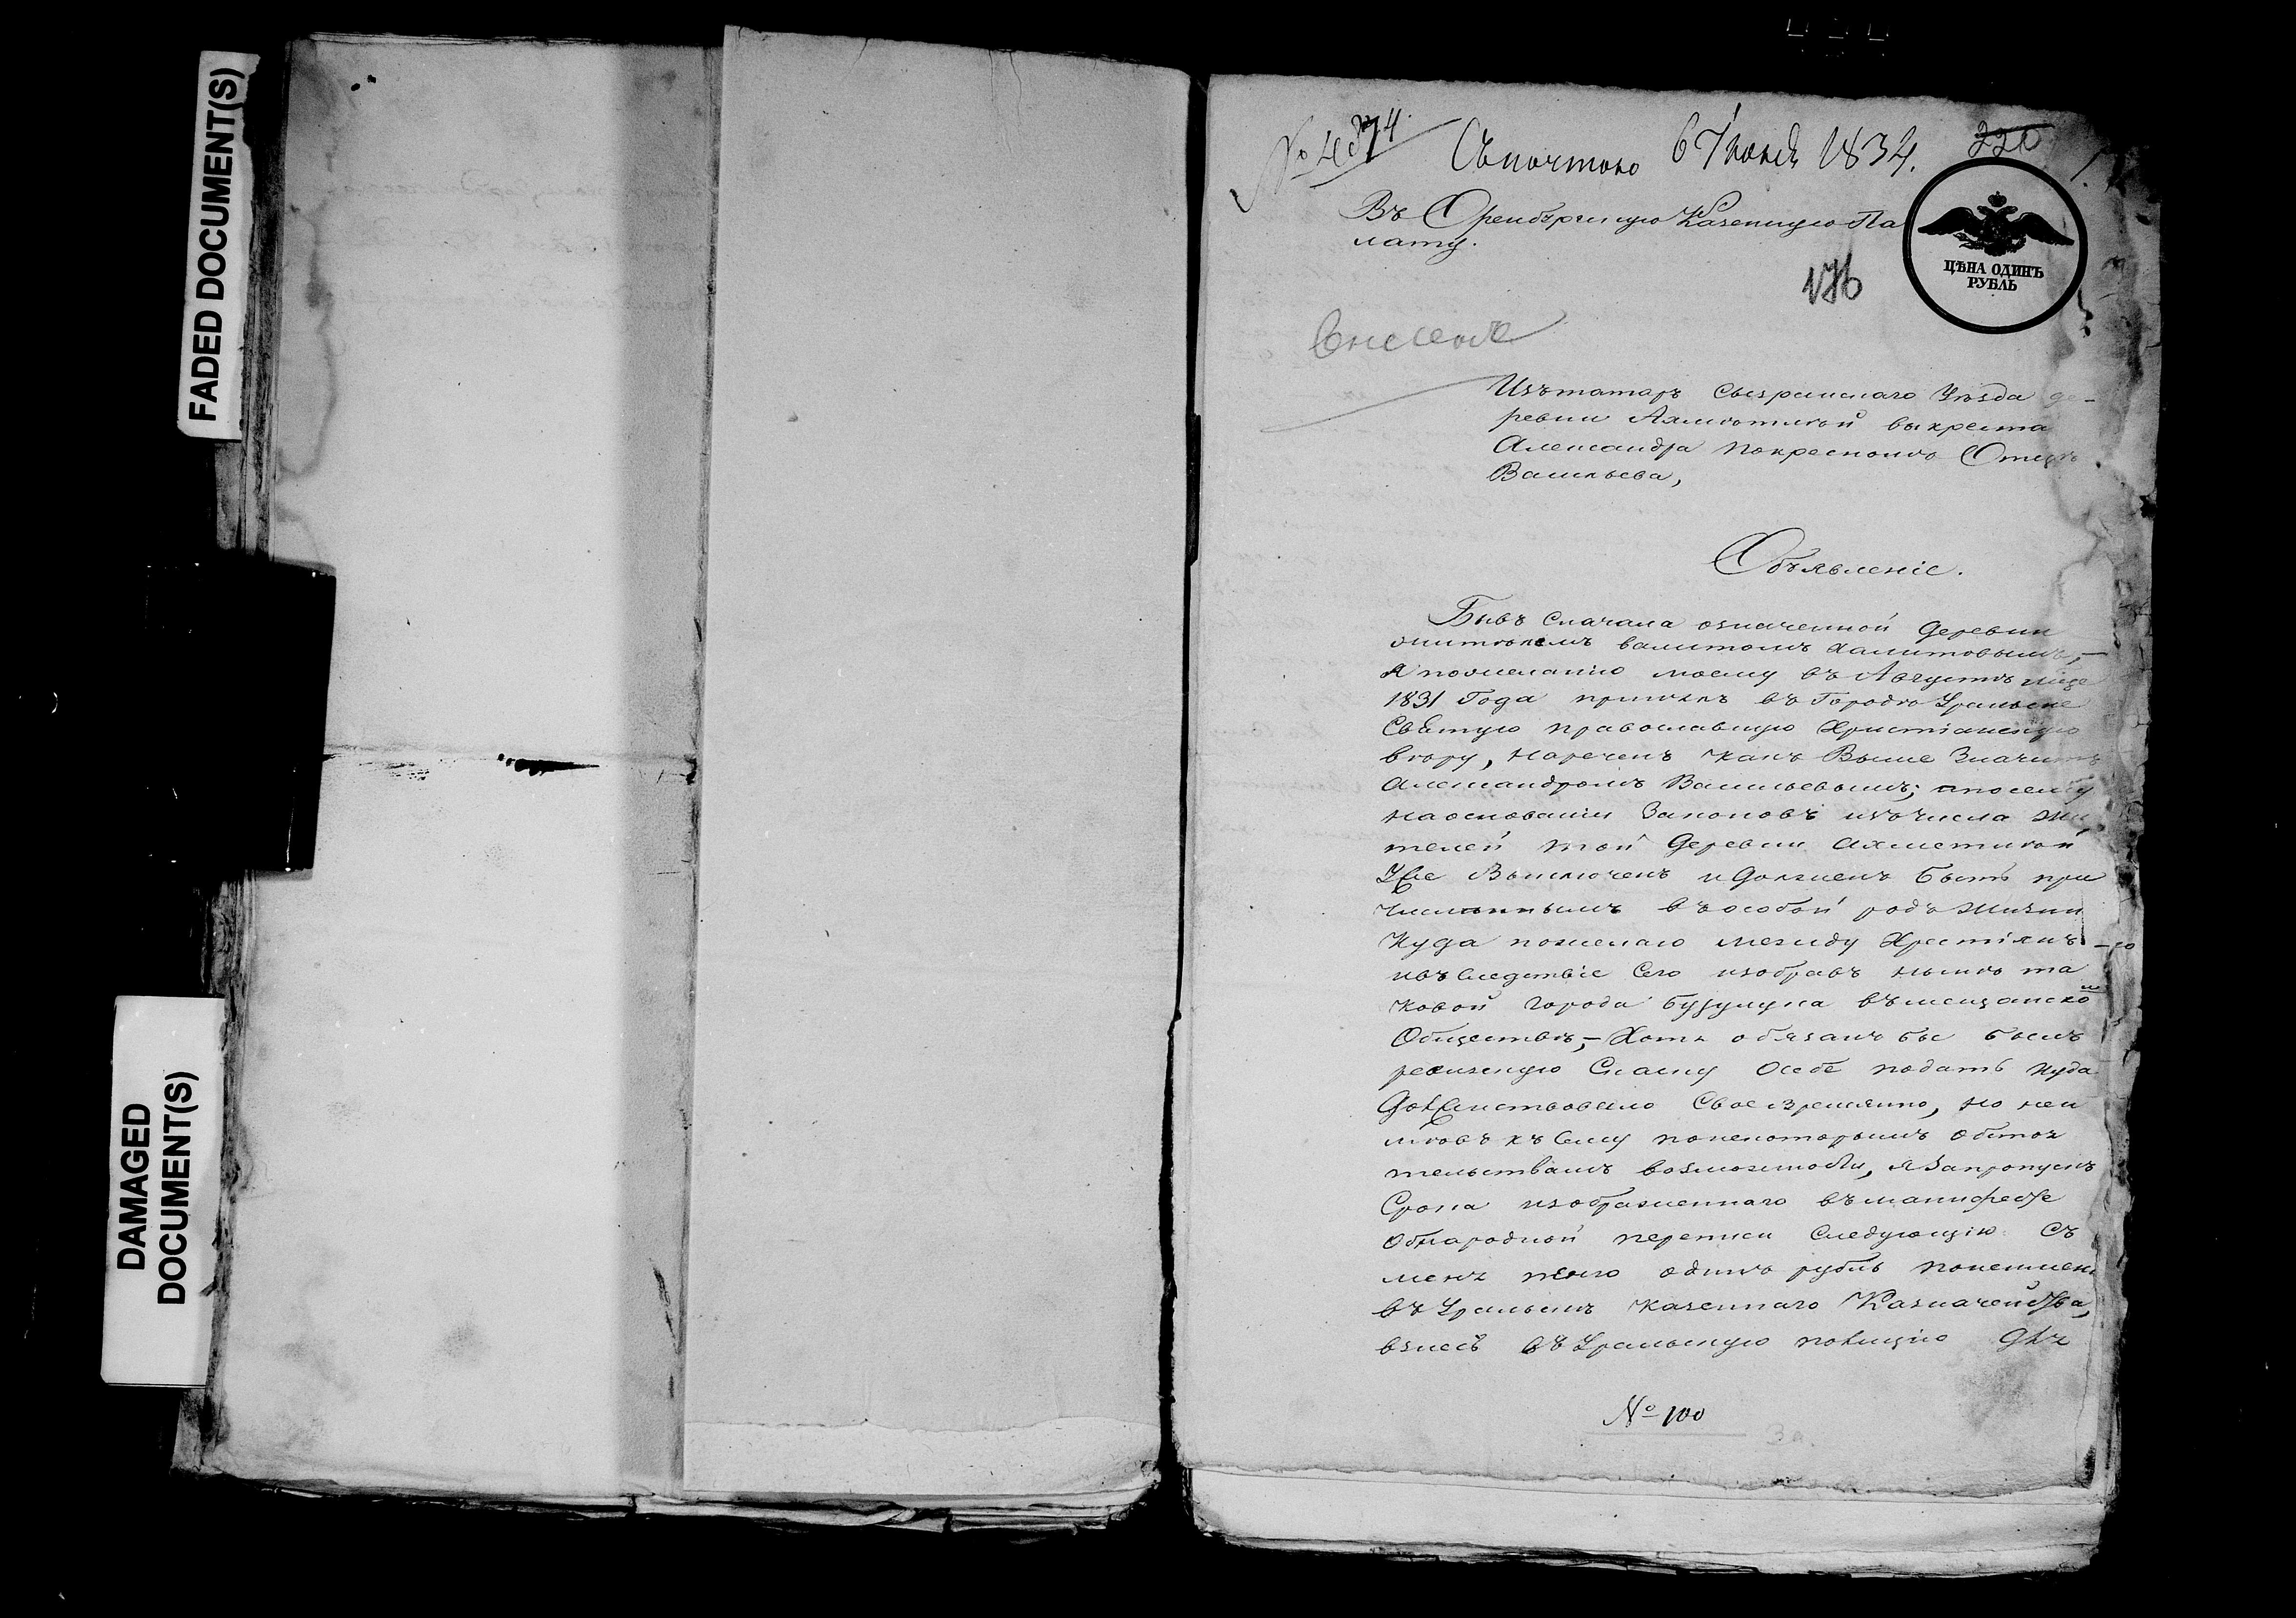 FADED DOCUMENT(S)
DAMAGED
DOCUMENT(S)
Съ почтою 6 Іюня 1834.
220
Въ Оренбургскую Казенную Па
лату.
176
ЦѢНА ОДИНЪ
РУБЛЬ
Изъ татаръ Сызранскаго Уѣзда де-
ревни Ахметьевой выкреста
Александра покрестному Отцу
Васильева,
Объявленіе.
Бывъ Сначала означенной Деревни
жителемъ Халитовымъ,
я по желанію моему въ Августѣ мцѣ
1831 Года принялъ въ Городѣ Уральске
Святую православную Христіанскую
вѣру, нареченъ какъ Выше Значитъ
Александромъ Васильевымъ; а посему
на основаніи Законовъ изъ числа жи
телей той Деревни
Уже Выключенъ и Долженъ Быть при
численнымъ въ особой родъ жизни
Куда пожелаю между Хрестіянъ
и въ Следствіе Сего избравъ нынѣ та
ковой города Бузулука въ мещанско
Обществѣ,- Хотя обязанъ бы былъ
ревизскую Скаску о себе подать куда
Своевременно, но неи
мѣвъ къ Сему по некоторымъ обстоя
тельствамъ возможности, я Запропускъ
Срока изображеннаго въ манифесте
О народной переписи Следующію съ
меня пѣню одинъ рубль
въ Уральскъ Казеннаго Казначейства,
взнесъ въ Уральскую полицію для
№ 100